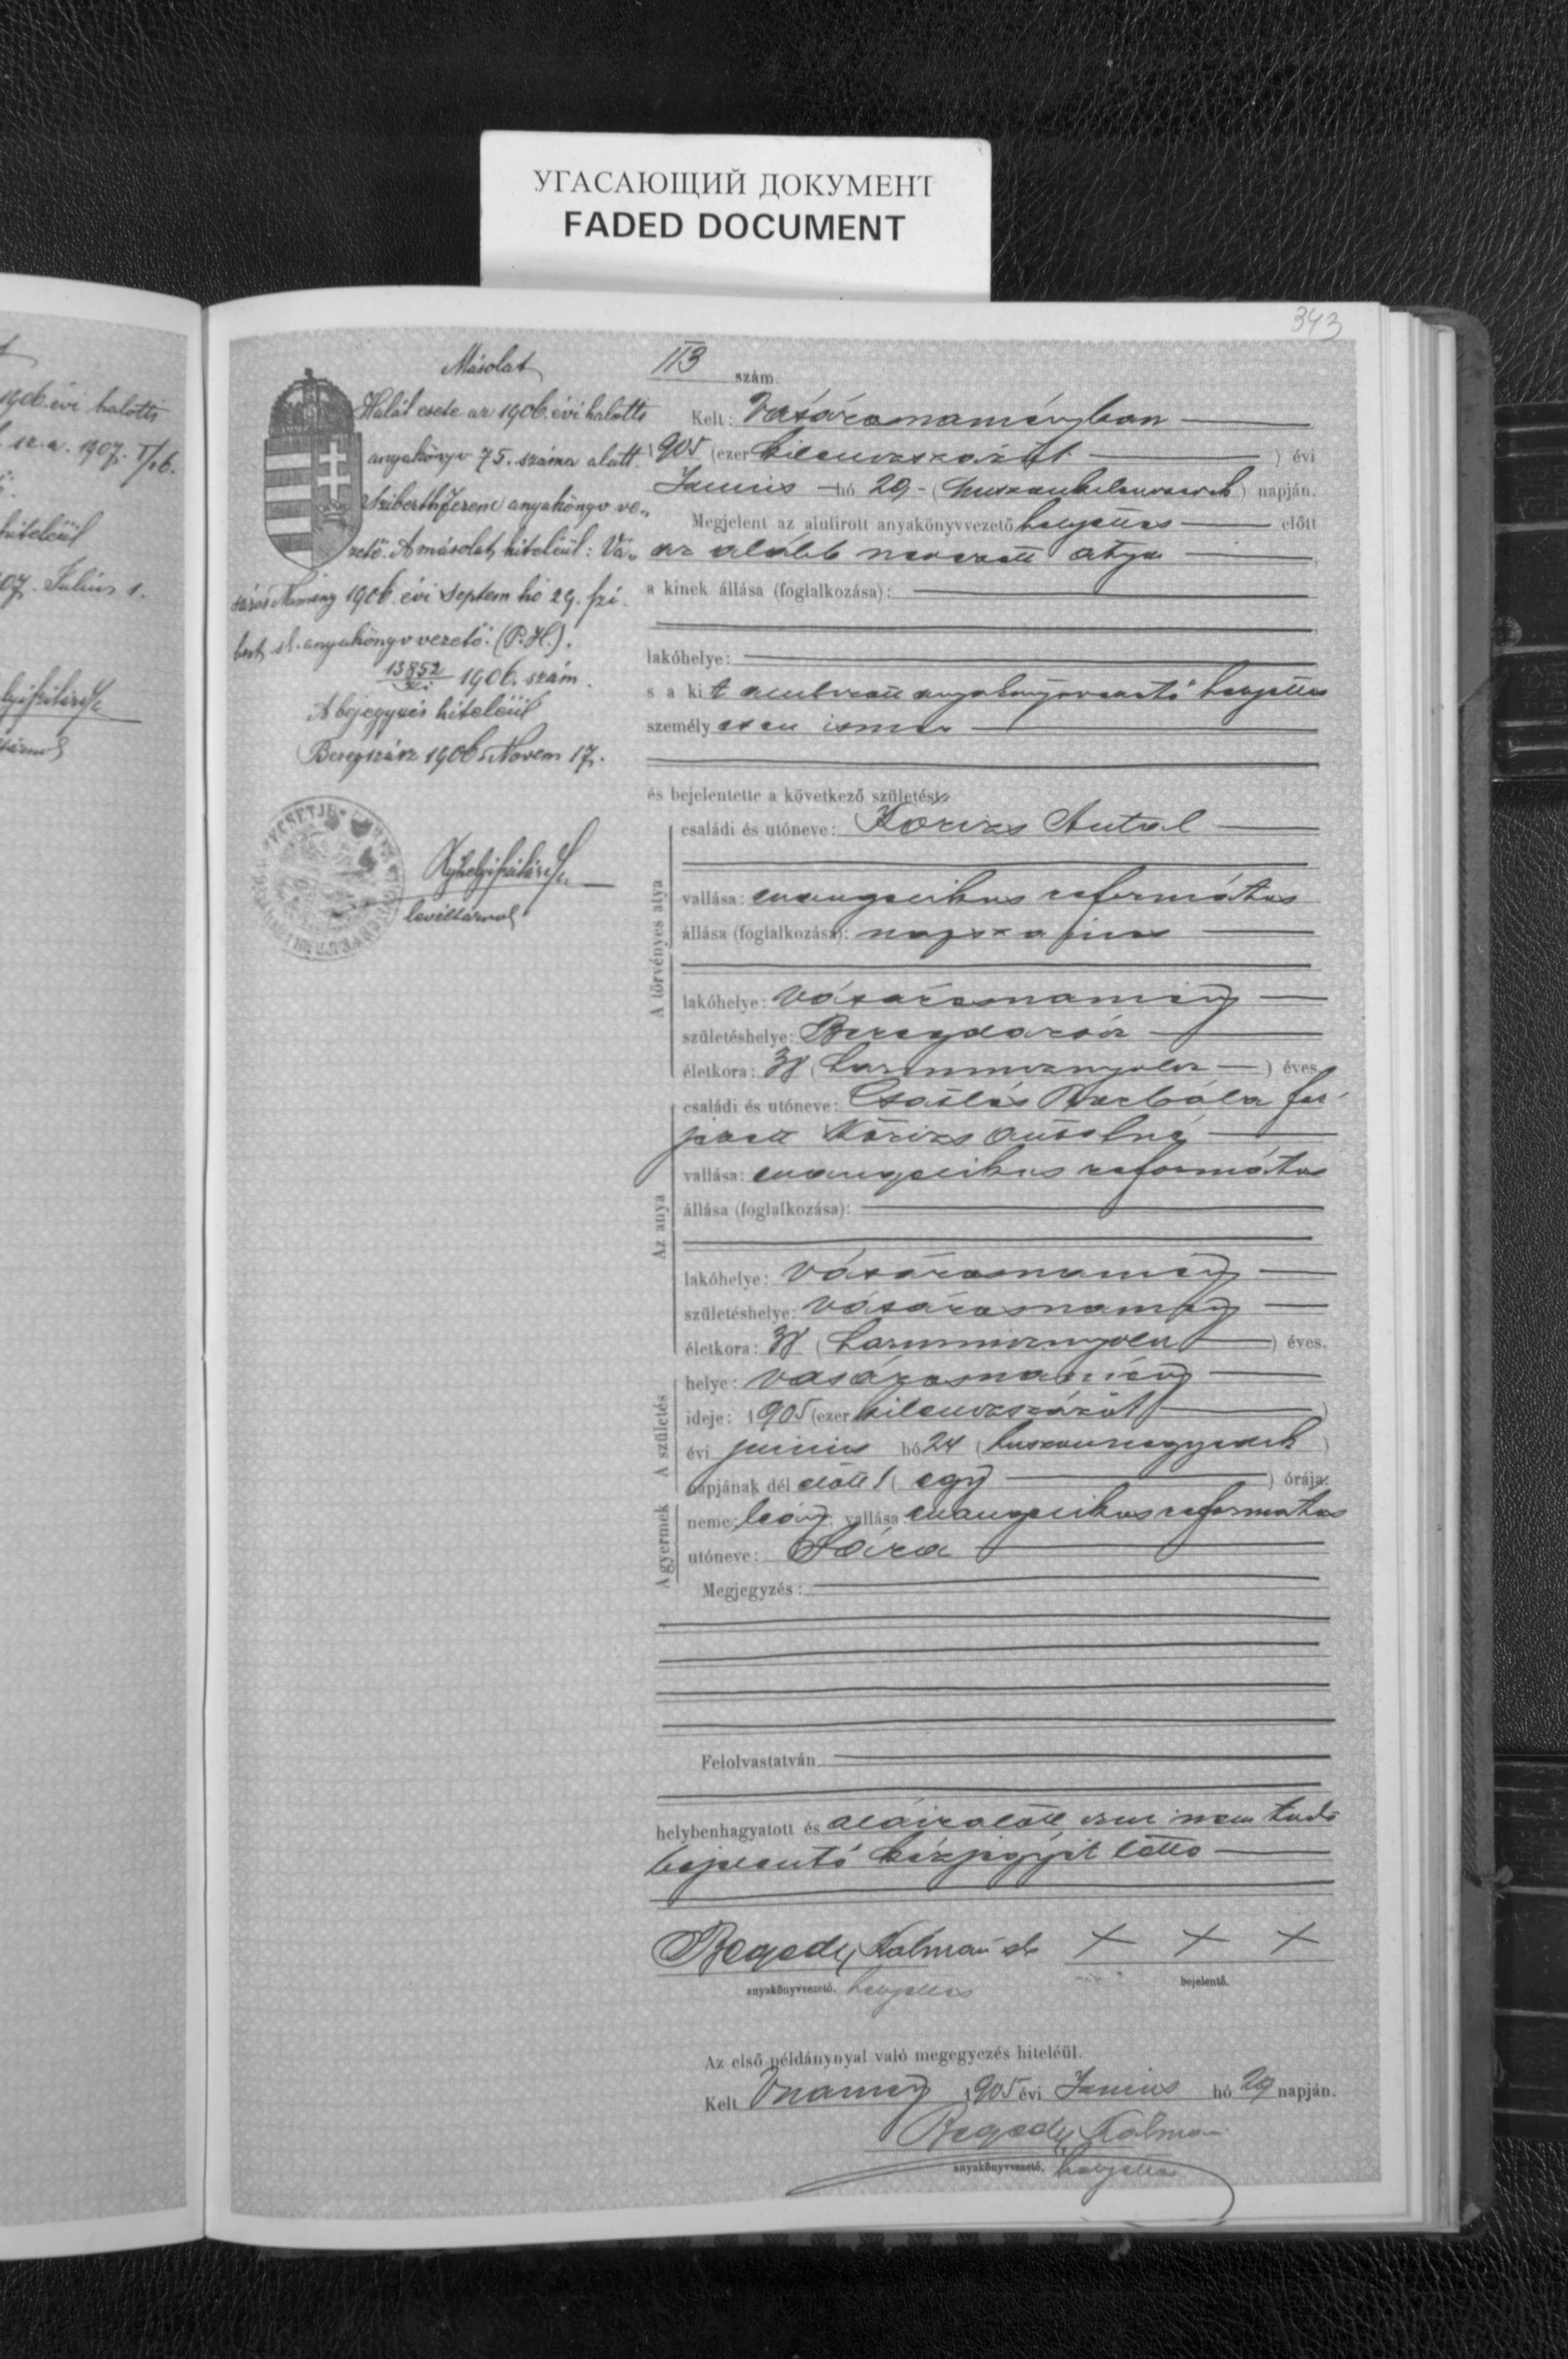 УГАСАЮЩИЙ ДОКУМЕНТ
FADED DOCUMENT
343
1906. évi halotti
sz. a. 1907. I/6.
hiteléül
07. Julius 1.
Másolat
Halál esete az 1906. évi halotti
anyakönyv 75. száma alatt.
Sziberth Ferenc anyakönyv ve-
zető. A másolat hiteléül: Vá-
sáros Namény 1906. évi Septem hó 29. Szi-
berth sk. anyakönyvvezető. (P.H.).
13852 1906. szám.
A bejegyzés hiteléül
Beregszász 1906. Novem 17.
levéltárnok
113 szám.
Kelt: Vásárosnaményban
1905 (ezer kilenczszázöt) évi
Junius hó 29- (huszonkilenczedik) napján.
Megjelent az alulirott anyakönyvvezető helyettes előtt
az alább nevezett atya
a kinek állása (foglalkozása):
lakóhelye:
s a kit alulirott anyakönyvvezető helyettes
személyesen ismer
és bejelentette a következő születést:
A törvényes atya
családi és utóneve: Körizs Antal
vallása: evangelikus református
állása (foglalkozása): napszámos
lakóhelye: Vásárosnamény
születéshelye: Beregdaróc
életkora: 38 (harmincznyolcz) éves.
Az anya
családi és utóneve: Barbála fér-
jezett Körizs Antalné
vallása: evangelikus református
állása (foglalkozása):
lakóhelye: Vásárosnamény
születéshelye: Vásárosnamény
életkora: 38 (harmincznyolcz) éves.
A születés
helye: Vásárosnamény
ideje: 1905 (ezer kilenczszázöt)
évi junius hó 24 (huszonnegyedik)
napjának dél előtt 1 (egy) órája.
A gyermek
neme: leány, vallása: evangelikus református
utóneve: Sára
Megjegyzés:
Felolvastatván
helybenhagyatott és aláiratott, irni nem tudó
bejelentő kézjegyét tette
Begedy Kálmán sk + + +
anyakönyvvezető. helyettes bejelentő.
Az első példánynyal való megegyezés hiteléül.
Kelt Vnamény 1905 évi Junius hó 29 napján.
Begedy Kálmán
anyakönyvvezető. helyettes